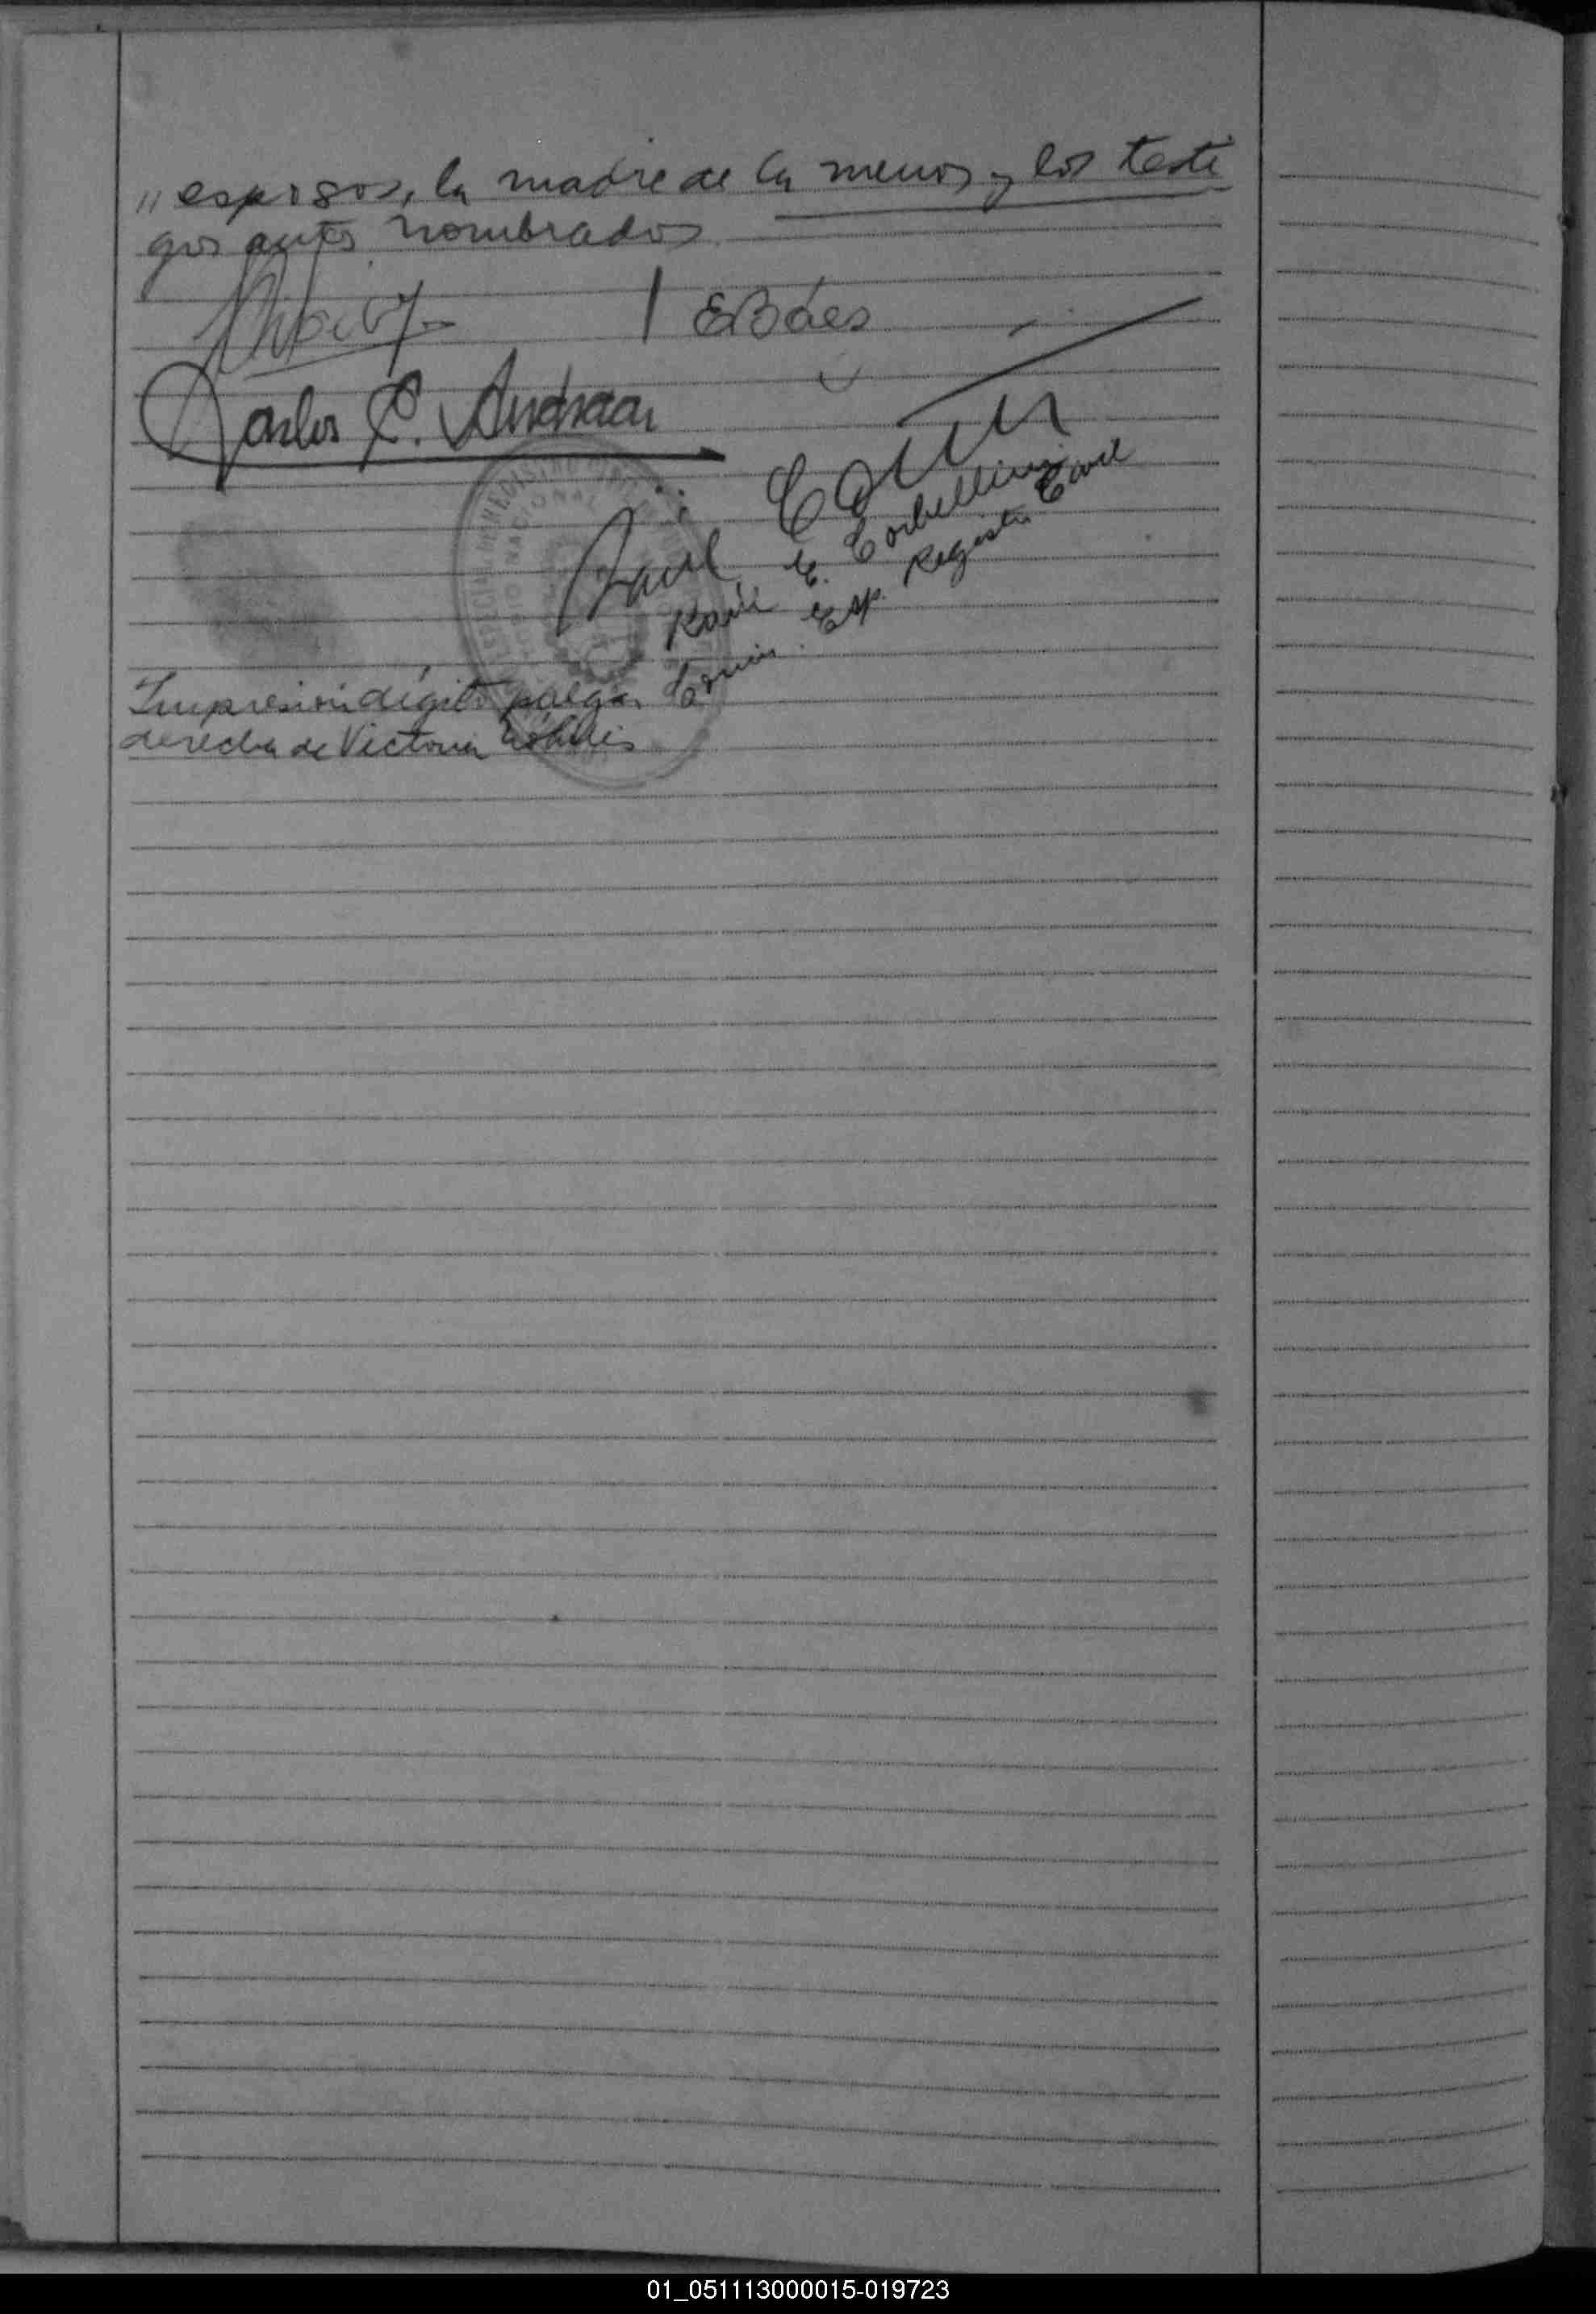 " esposos, la madre de la menor y los testi
gos antes nombrados
E Báes
Carlos C. Andrada
Raúl
Raúl E. Corbellini
Comis. Esp. Registro Civil
Impresión dígito pulgar
derecho de Victoria
01_051113000015-019723